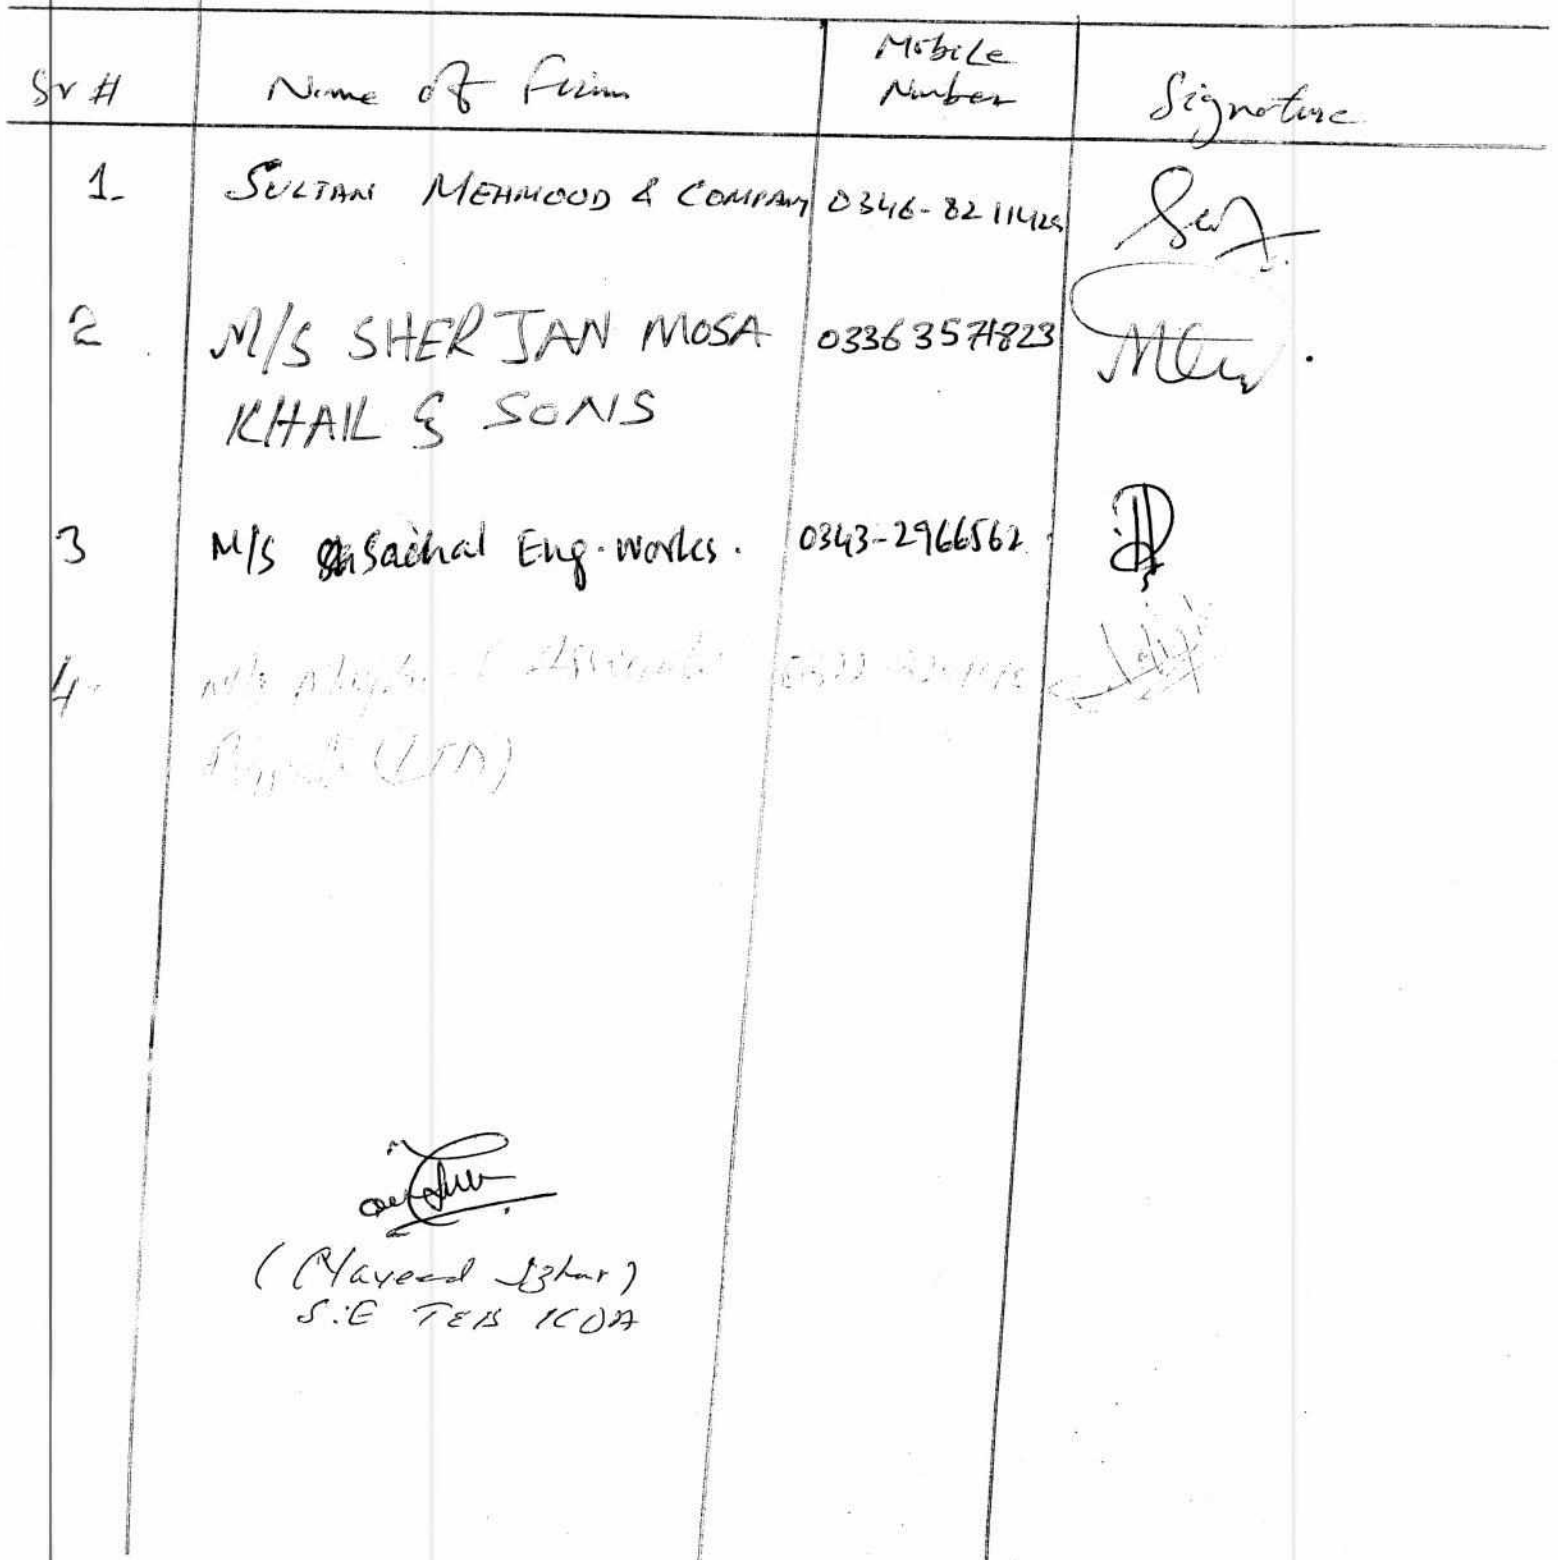 Sr # Name of Firim Mobile Number Signature
1- SULTAN MEHMOOD & COMPANY 0346-8211425
2 M/S SHER JAN MOSA 03363571823
KHAIL & SONS
3 M/S Sachal Eng. works. 0343-2966562
4-
(LTD)
(Naveed Izhar)
S.E TEB KDA